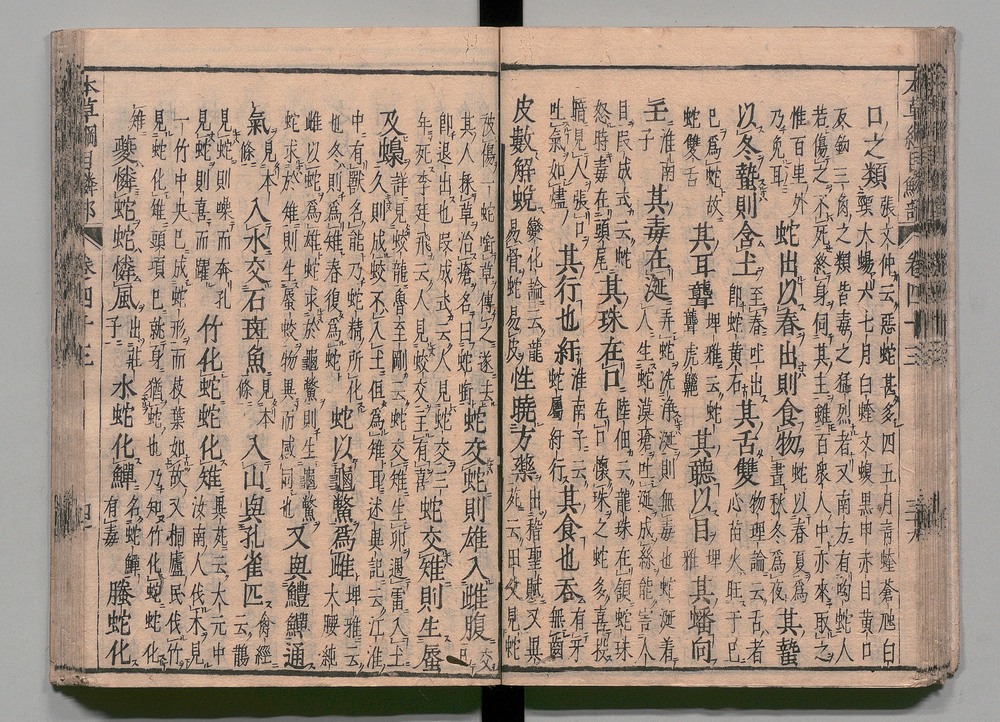 口之類張文仲云惡蛇甚多四五月青蝰蒼虺白
頸大蝎六七月白蝰文蝮黑甲赤目黃口
反鉤三角之類皆毒之猛烈者又南方有呴蛇人
若傷之不死終身伺其主雖百衆人中亦來取之
惟百里外
乃免耳蛇出以春出則食物蛇以春夏爲
晝秋冬爲夜其蟄
以冬蟄則含土至春吐出
即蛇黄石其舌雙物理論云舌者
心苗火旺于巳
巳爲蛇故
蛇雙舌其耳聾埤雅云蛇
聾虎齆其聽以目埤
雅其蟠向
壬淮南
子其毒在涎弄蛇洗淨涎則無毒也蛇涎着
人生蛇漠瘡吐涎成絲能害人
目段成式云蛇
怒時毒在頭尾其珠在口陸佃云龍珠在頷蛇珠
在口懷珠之蛇多喜投
暗見人張口
吐氣如燼其行也紆淮南子云
蛇屬紆行其食也吞有牙
無齒
皮數解蛻變化論云龍
易骨蛇易皮性曉方藥出稽聖賦又異
苑云田父見蛇
被傷一蛇銜草傅之遂去
其人採草治瘡名曰蛇銜蛇交蛇則雄入雌腹交
已
即退出也段成式云人見蛇交三
年死李廷飛云人見蛟交主有喜蛇交雉則生蜃
及蟂詳見蛟龍魯至剛云蛇交雉生卵遇雷入土
久則成蛟不入土但爲雉耳述異記云江淮
中有獸名能乃蛇精所化
也冬則爲雉春復爲蛇蛇以龜鱉爲雌埤雅云
大腰純
雌以蛇爲雄蛇求於龜鱉則生龜鱉
蛇求於雉則生蜃蛟物異而感同也又與鱧鱓通
氣見本
條入水交石斑魚見本
條入山與孔雀匹禽經
云鵲
見蛇則噪而奔孔
見蛇則喜而躍竹化蛇蛇化雉異苑云大元中
汝南人伐木見
一竹中央已成蛇形而枝葉如故又桐廬民伐竹
見蛇化雉頭項已就身猶蛇也乃知竹化蛇蛇化
雉夔憐蛇蛇憐風出莊
子水蛇化鱓名蛇鱓
有毒螣蛇化